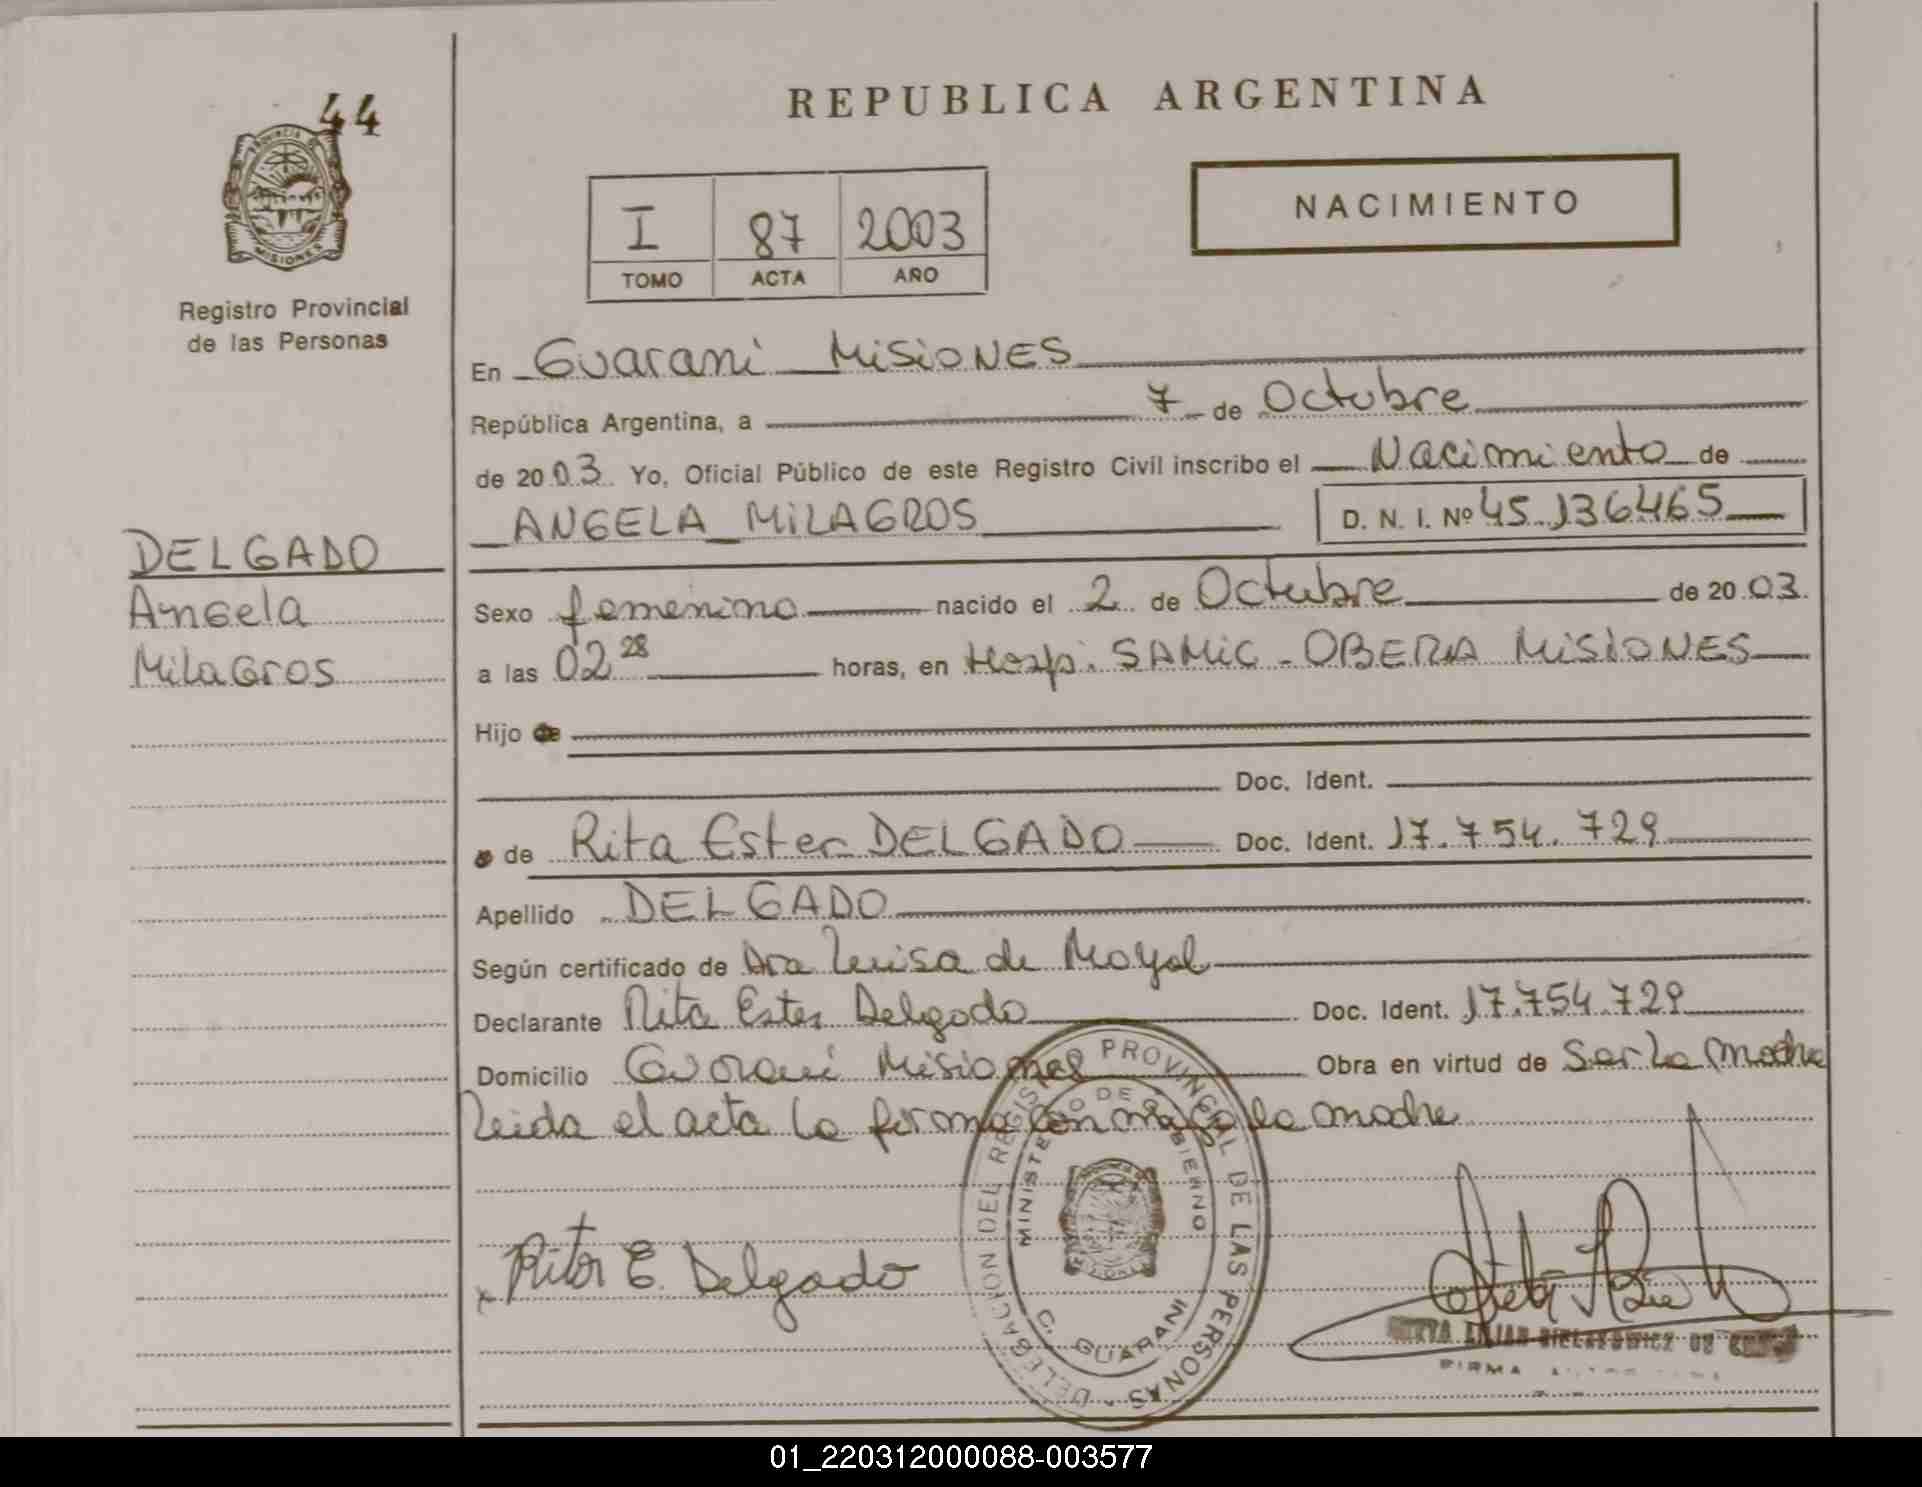 44
PROVINCIA DE
MISIONES
Registro Provincial
de las Personas
REPUBLICA ARGENTINA
I 87 2003
TOMO ACTA AÑO
NACIMIENTO
En Guarani Misiones
República Argentina, a 7 de Octubre
de 2003. Yo, Oficial Público de este Registro Civil inscribo el Nacimiento de
ANGELA MILAGROS D. N. I. Nº 45.136465
DELGADO
Angela
Milagros
Sexo femenino nacido el 2 de Octubre de 2003.
a las 02 28 horas, en Hosp. SAMIC - OBERA MISIONES
Hijo de
Doc. Ident.
de Rita Ester DELGADO Doc. Ident. 17.754.729
Apellido DELGADO
Según certificado de Dra Luisa de Moyal
Declarante Rita Ester Delgado Doc. Ident. 17.754.729
Domicilio Guarani Misiones Obra en virtud de Ser La Madre
Leida el acta la firma con migo la madre
Rita E. Delgado
DELEGACION DEL REGISTRO PROVINCIAL DE LAS PERSONAS
MINISTERIO DE GOBIERNO
C. GUARANI
LILIAN BIELAKOWICZ DE
FIRMA
01_220312000088-003577